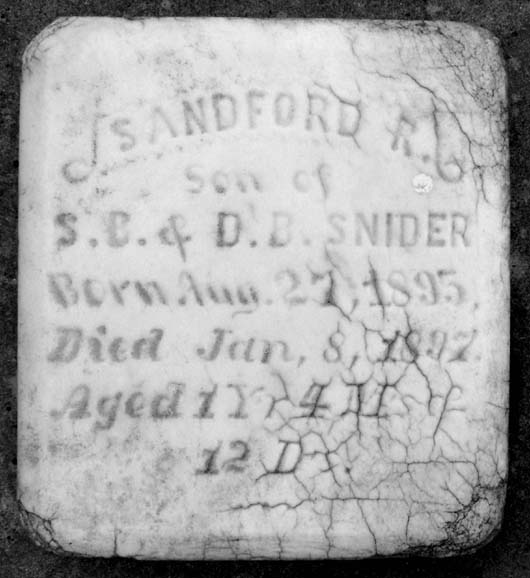 SANDFORD R.
Son of
S. B. & D. B. SNIDER
Born Aug. 27, 1895,
Died Jan, 8, 1897.
Aged 1 Y. 4 M. &
12 D.